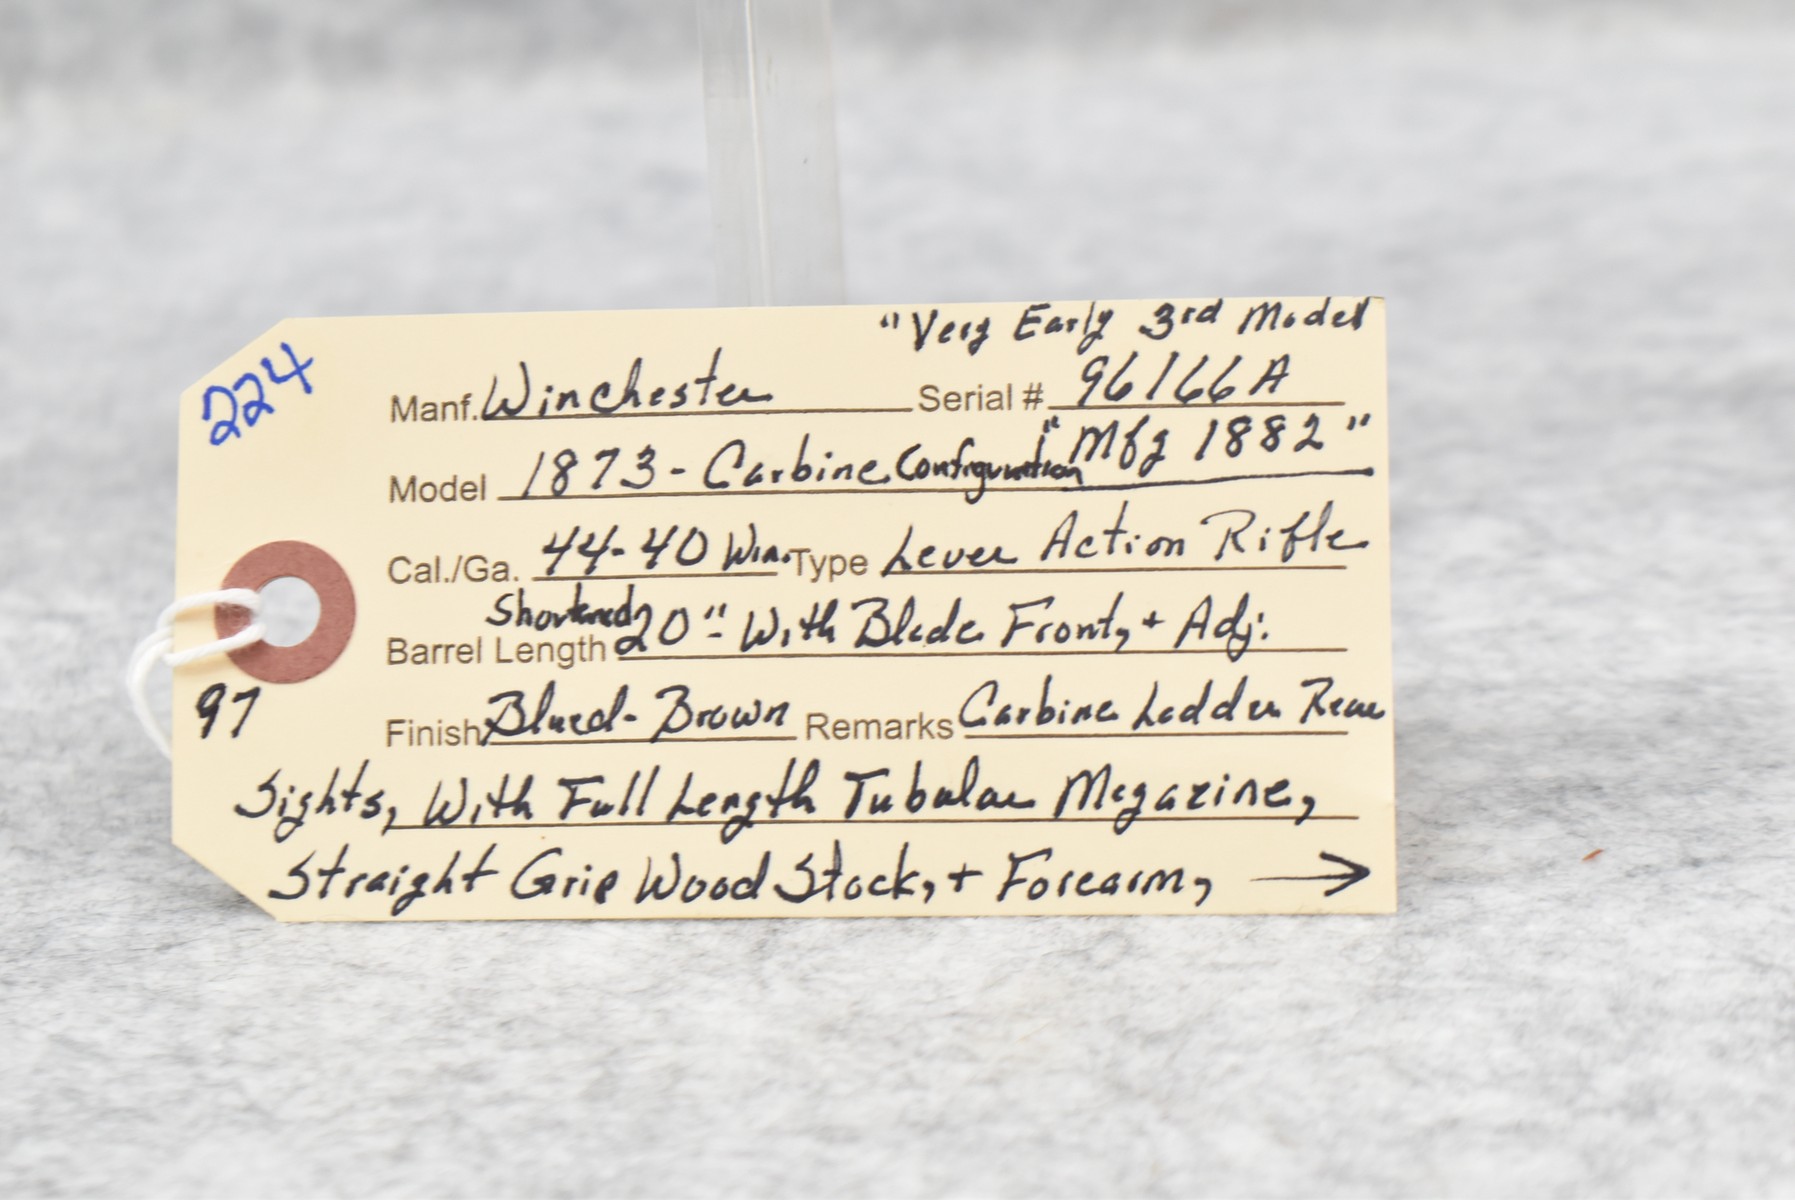 224
"Very Early 3rd Model
Manf. Winchester Serial # 96166A
Model 1873 - Carbine Configuration "Mfg 1882"
Cal./Ga. 44-40 Win. Type Lever Action Rifle
Barrel Length Shortened 20" - With Blade Front, + Adj.
97
Finish Blued - Brown Remarks Carbine Ladder Rear
Sights, With Full Length Tubular Magazine,
Straight Grip Wood Stock, + Forearm, →